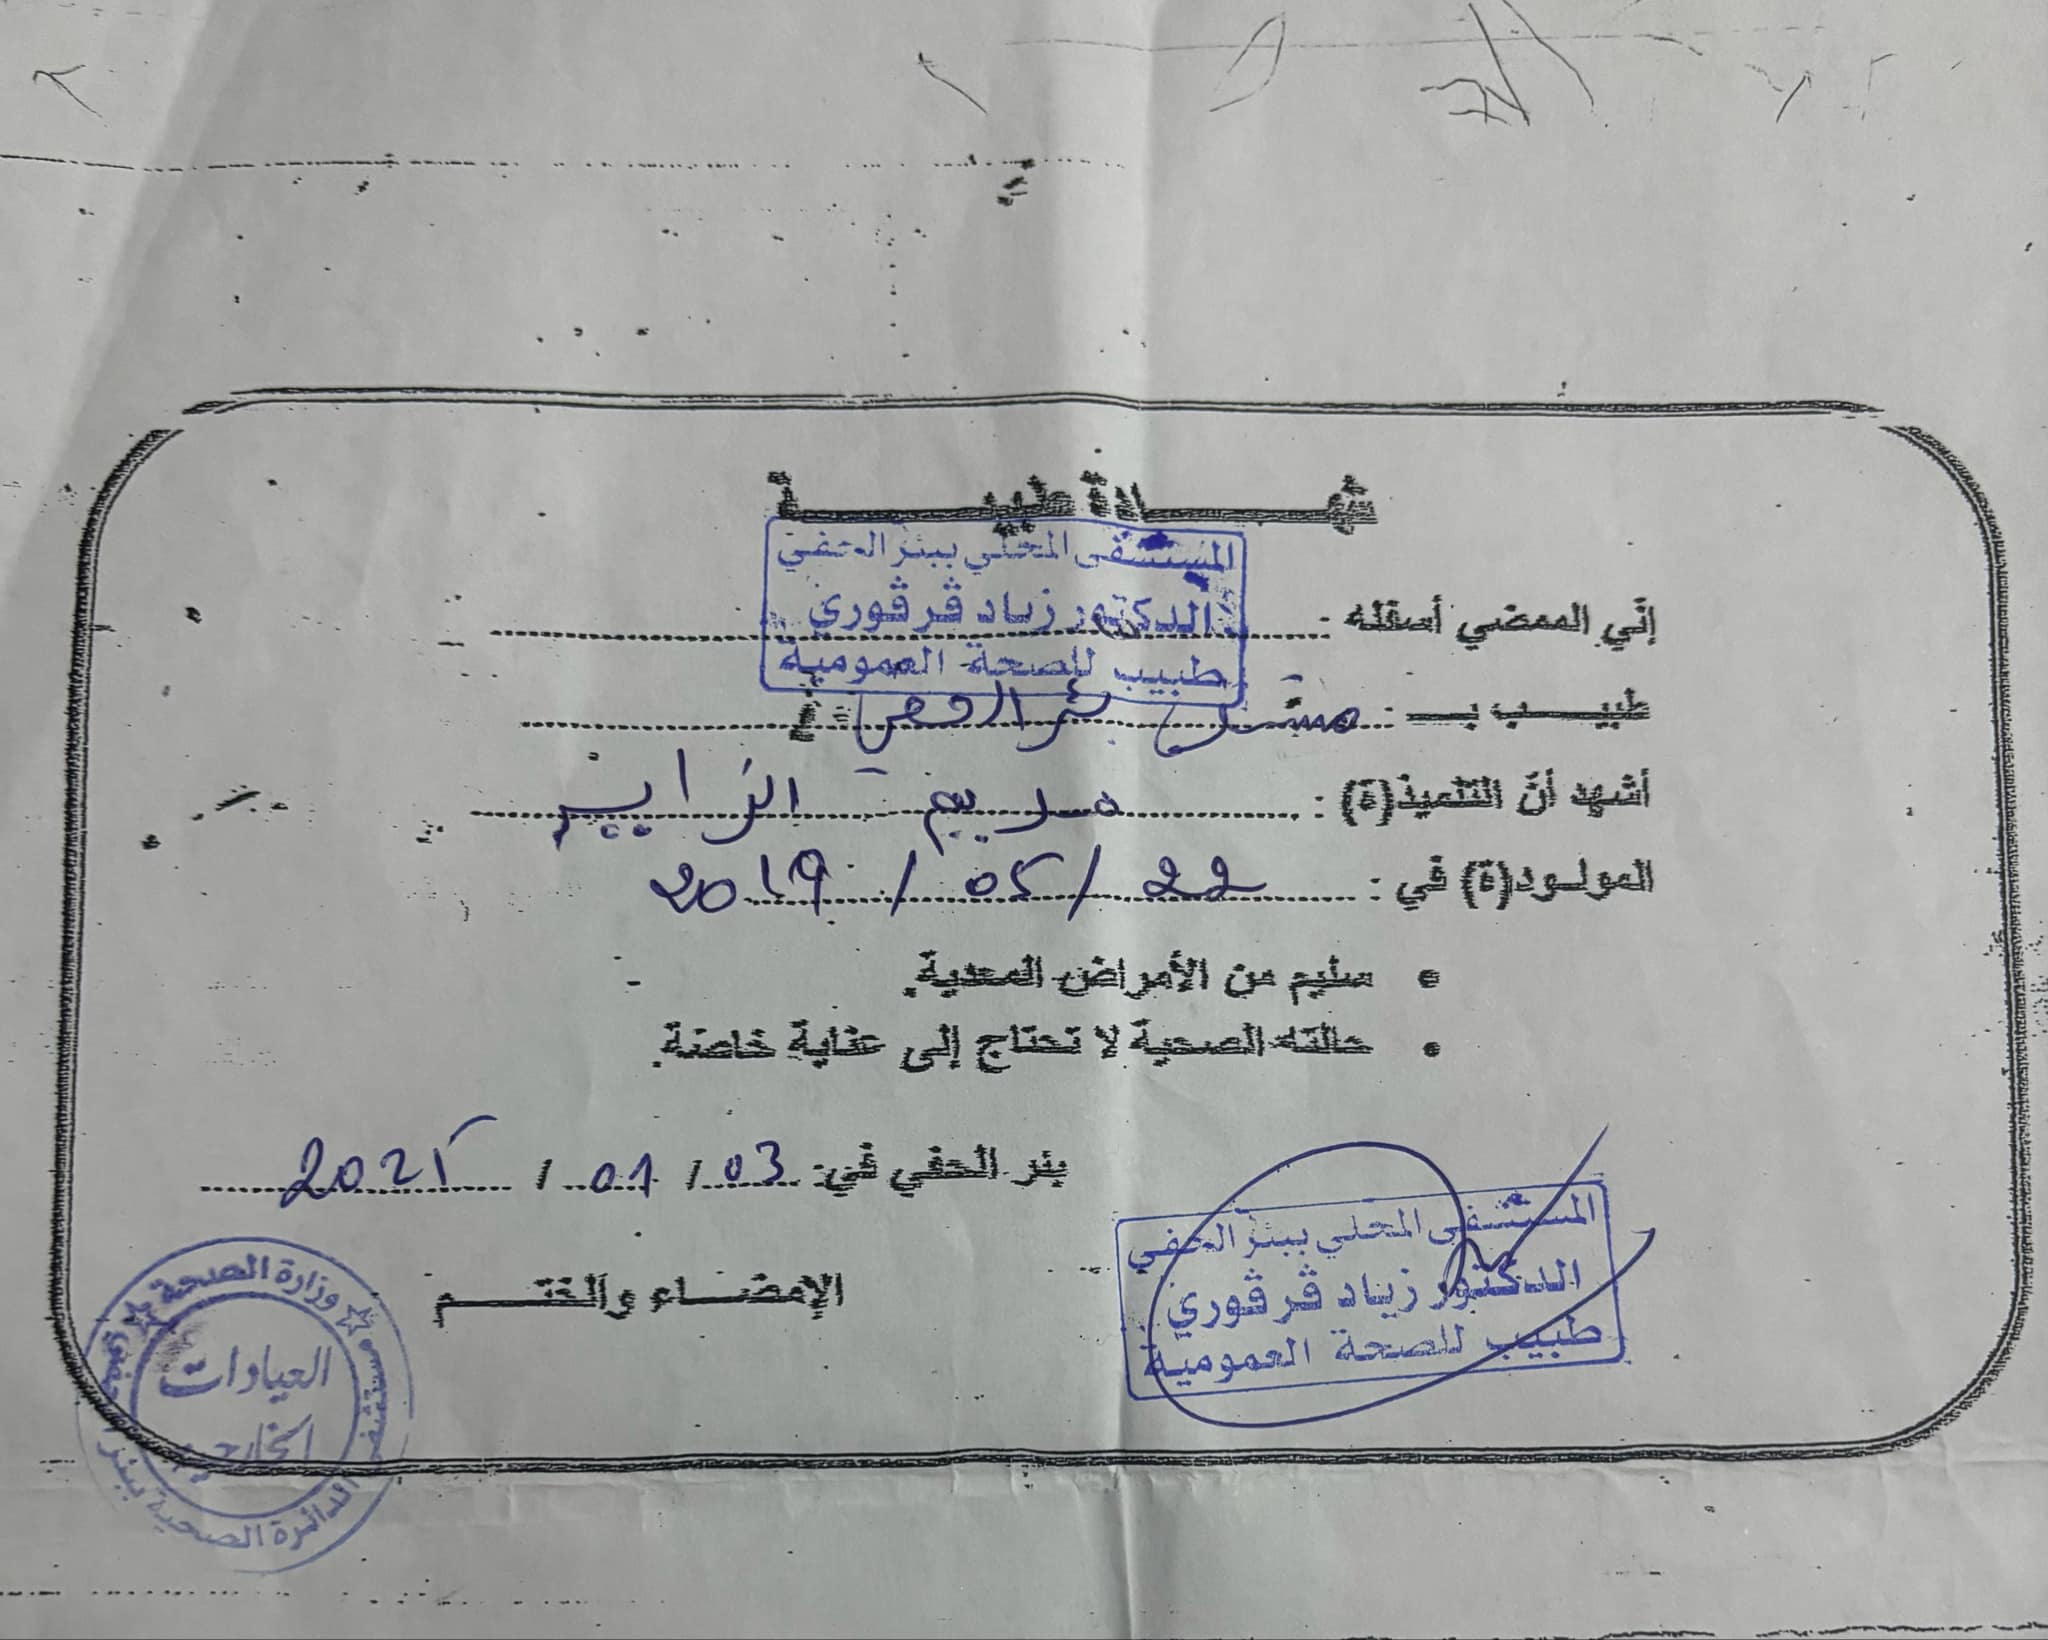 شهادة طبية
المستشفى المحلي ببئر الحفي
الدكتور زياد ڤرڤوري
طبيب للصحة العمومية
إنّي الممضي أسفله :
طبيب بـ :
أشهد أنّ التلميذ(ة) : مريم الزايير
المولود(ة) في : 22 / 05 / 2019
• سليم من الأمراض المعدية.
• حالته الصحية لا تحتاج إلى عناية خاصة.
بئر الحفي في: 03 / 01 / 2025
الإمضاء والختم
المستشفى المحلي ببئر الحفي
الدكتور زياد ڤرڤوري
طبيب للصحة العمومية
وزارة الصحة
العيادات
الخارجية
الدائرة الصحية ببئر الحفي